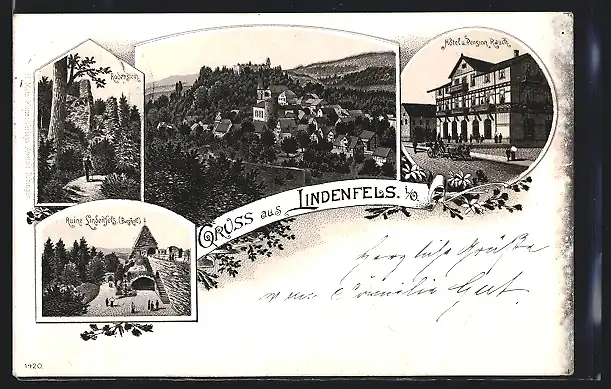 Rodenstein.
Hôtel u. Pension Rauch.
Ruine Lindenfels. (Burghof)
GRUSS aus LINDENFELS. i/O.
herzliche Grüße
von Familie Gut.
1420.